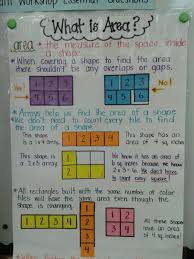 Workshop Essential Questions
What is Area?
area = the measure of the space inside
a shape.
* When covering a shape to find the area
there shouldn't be any overlaps or gaps.
No! 1 2 3 4 Yes! No!
* Arrays help us find the area of a shape.
We don't need to count every tile to find
the area of a shape
This shape is a 1x4 array. 1 2 3 4 This shape has an area of 4 sq. inches
This shape is a 2x3 array. We know it has an area of 6 sq. inches because
We don't have to count every square.
* All rectangles built with the same number of color
tiles will have the same area even though the
shape is different.
1 2 3 4
1
2
3
4
1 2
3 4
All these shapes have an area of 4 sq. inches!